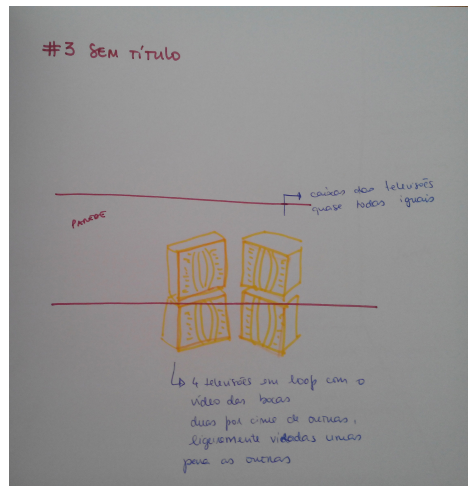 #3 SEM TÍTULO
caixas das televisões
quase todas iguais
PAREDE
4 televisões em loop com o
vídeo das bocas
duas por cima de outras,
ligeiramente viradas umas
para as outras